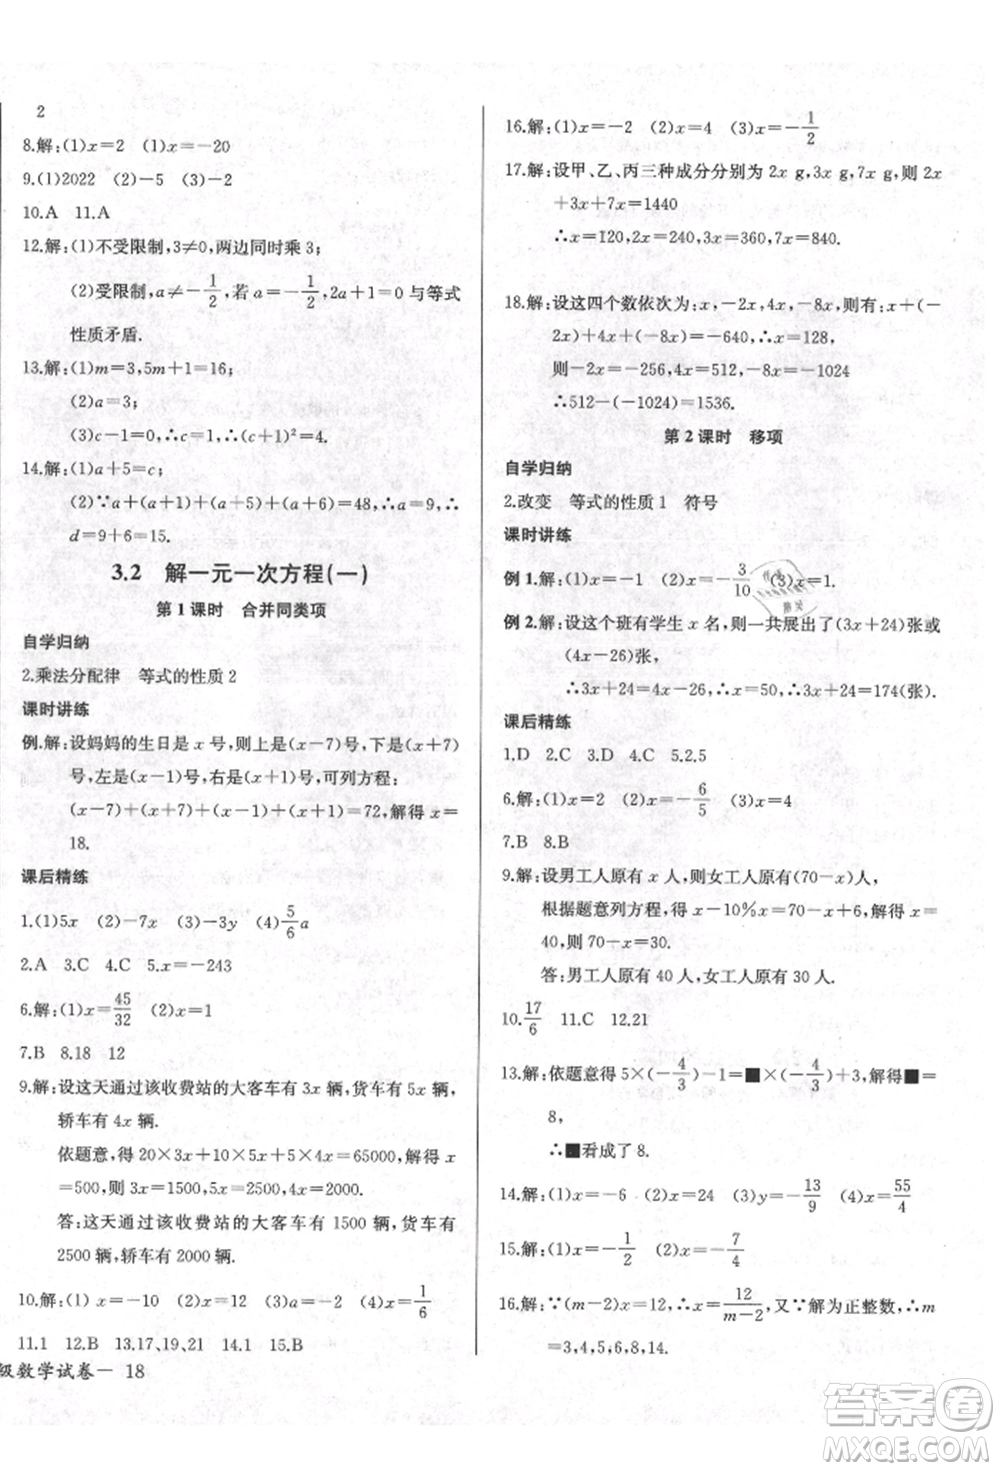 2
8.解:(1)x=2 (1)x=-20
9.(1)2022 (2)-5 (3)-2
10.A 11.A
12.解:(1)不受限制,3≠0,两边同时乘3;
(2)受限制,a≠-1/2,若a=-1/2,2a+1=0与等式
性质矛盾.
13.解:(1)m=3,5m+1=16;
(2)a=3;
(3)c-1=0,∴c=1,∴(c+1)²=4.
14.解:(1)a+5=c;
(2)∵a+(a+1)+(a+5)+(a+6)=48,∴a=9,∴
d=9+6=15.
3.2 解一元一次方程(一)
第1课时 合并同类项
自学归纳
2.乘法分配律 等式的性质2
课时讲练
例.解:设妈妈的生日是x号,则上是(x-7)号,下是(x+7)
号,左是(x-1)号,右是(x+1)号,可列方程:
(x-7)+(x+7)+(x-1)+(x+1)=72,解得x=
18.
课后精练
1.(1)5x (2)-7x (3)-3y (4)5/6a
2.A 3.C 4.C 5.x=-243
6.解:(1)x=45/32 (2)x=1
7.B 8.18 12
9.解:设这天通过该收费站的大客车有3x辆,货车有5x辆,
轿车有4x辆.
依题意,得20×3x+10×5x+5×4x=65000,解得x
=500,则3x=1500,5x=2500,4x=2000.
答:这天通过该收费站的大客车有1500辆,货车有
2500辆,轿车有2000辆.
10.解:(1)x=-10 (2)x=12 (3)a=1 (4)x=1/6
11.1 12.B 13.17,19,21 14.1 15.1
级数学试卷— 18
16.解:(1)x=-2 (2)x=4 (3)x=-1/2
17.解:设甲、乙、丙三种成分分别为2x g,3x g,7x g,则2x
+3x+7x=1440
∴x=120,∴2x=240,3x=360,7x=840.
18.解:设这四个数依次为:x,-2x,4x,-8x,则有:x+(-
2x)+4x+(-8x)=-640,∴x=128,
则-2x=-256,4x=512,-8x=-1024
∴512-(-1024)=1536.
第2课时 移项
自学归纳
2.改变 等式的性质1 符号
课时讲练
例1.解:(1)x=-10 (2)x=-3/10 (3)x=1.
例2.解:设这个班有学生x名,则一共展出了(3x+24)张或
(4x-26)张,
∴3x+24=4x-26,∴x=50,∴3x+24=174(张).
课后精练
1.D 2.C 3.D 4.C 5.2.5
6.解:(1)x=2 (2)x=-6/5 (3)x=4
7.B 8.B
9.解:设男工人原有x人,则女工人原有(70-x)人,
根据题意列方程,得x-10%x=70-x+6,解得x=
40,则70-x=30.
答:男工人原有40人,女工人原有30人.
10.17/6 11.C 12.21
13.解:依题意得5×(-4/3)-1=■×(-4/3)+3,解得■=
8,
∴■看成了8.
14.解:(1)x=-6 (2)x=24 (3)y=-13/9 (4)x=55/4
15.解:(1)x=-1/2 (2)x=-7/4
16.解:∵(m-2)x=12,∴x=12/m-2,又∵解为正整数,∴m
=3,4,5,6,8,14.
答案圈
MXQE.COM